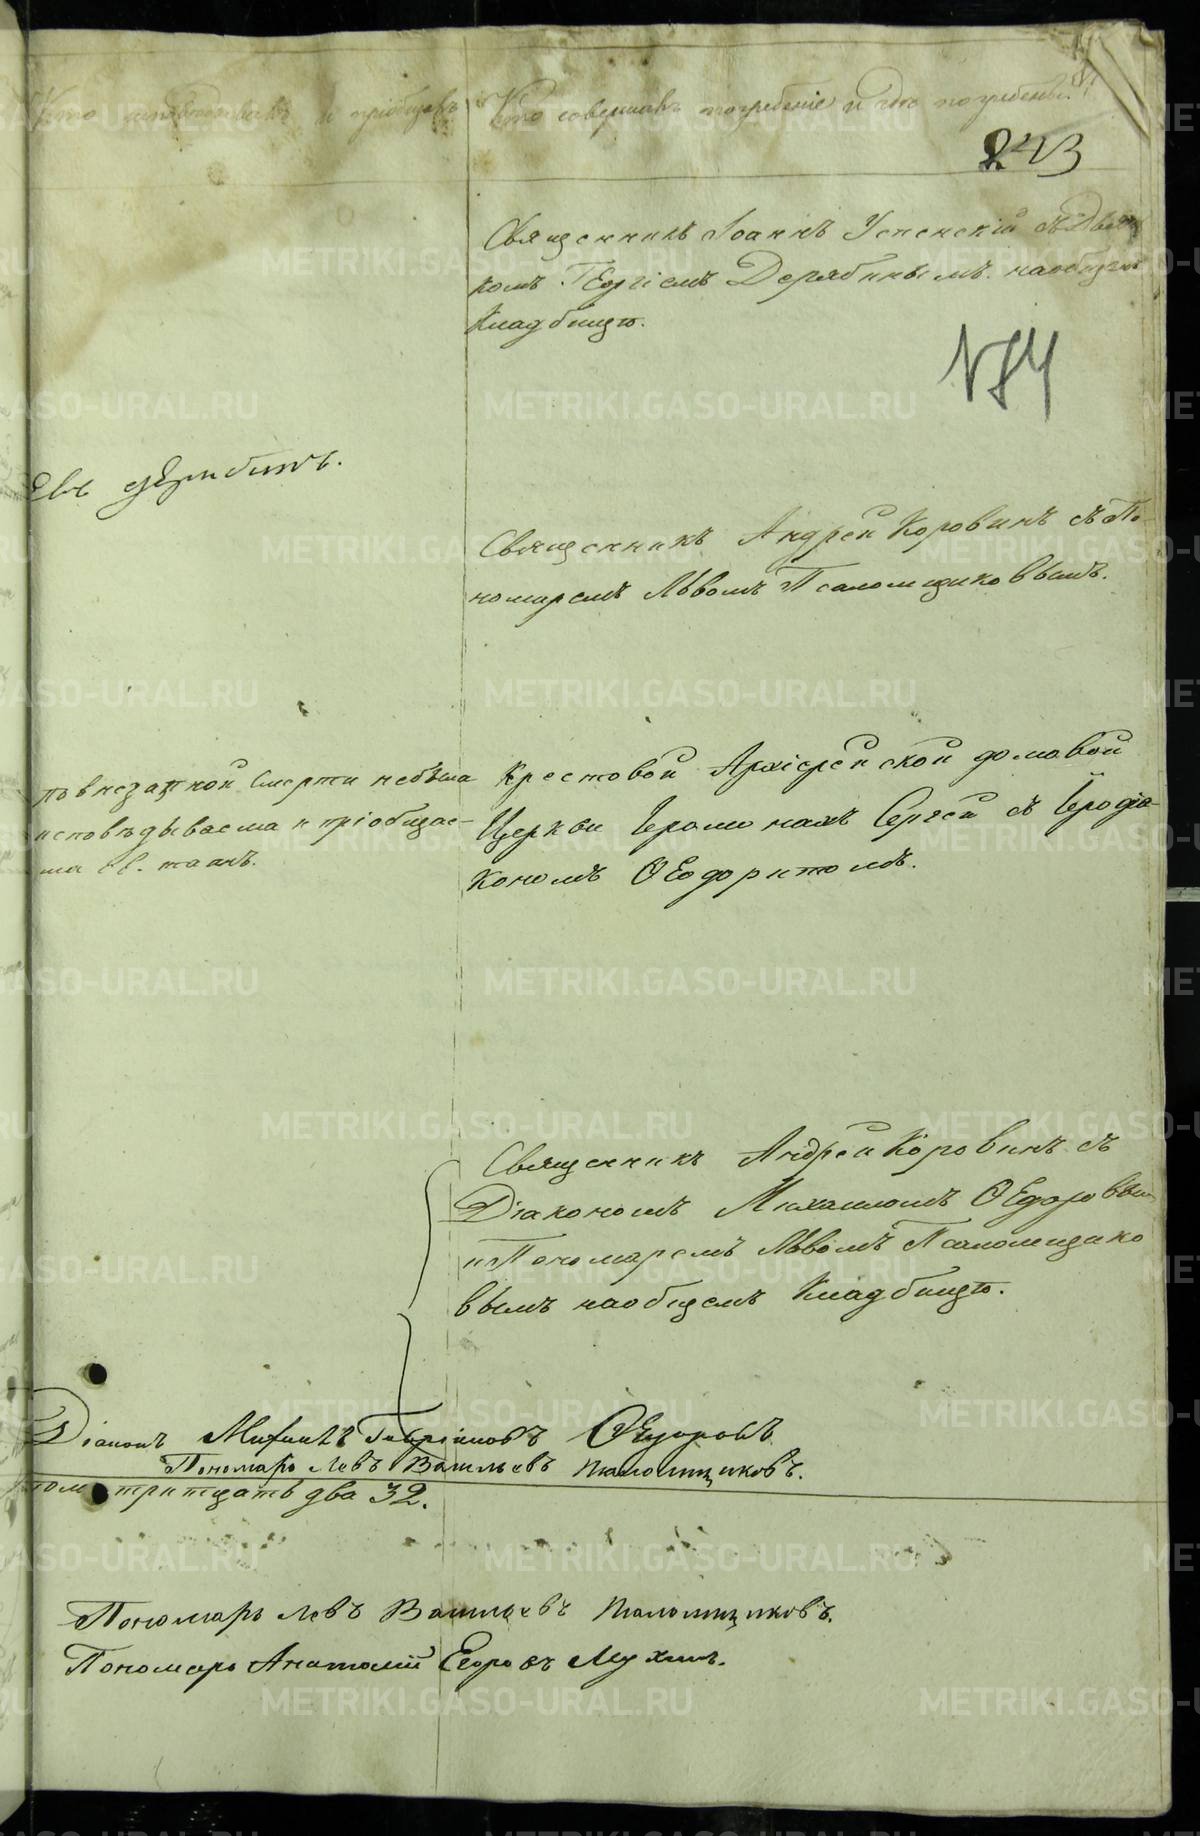 Кто исповѣдывалъ и пріобщалъ
Кто совершалъ погребеніе и гдѣ погребены.
243
Священникъ Іоаннъ Успенскій съ Дья-
комъ Георгіемъ Дерябинымъ наобщемъ
Кладбищѣ.
184
Дерябинъ.
Священникъ Андрей Коровинъ съ По-
номаремъ Львомъ Псаломщиковымъ.
внезапной смерти небыла
исповѣдываема и пріобщае-
ма Св. таинъ.
Крестовой Архіерейской домовой
Церкви Іеромонахъ Сергей съ Іеродіа-
кономъ Ѳеодоритомъ.
Священникъ Андрей Коровинъ съ
Діакономъ Михаиломъ Ѳедоровым
и Пономаремъ Львомъ Псаломщико
вымъ наобщемъ Кладбищѣ.
Діаконъ Михаилъ Гавріиловъ Ѳедоровъ
Пономарь Левъ Васильевъ Псаломщиковъ.
тритцать два 32.
Пономарь Левъ Васильевъ Псаломщиковъ.
Пономарь Анатолій Егоровъ Мухинъ.
METRIKI.GASO-URAL.RU